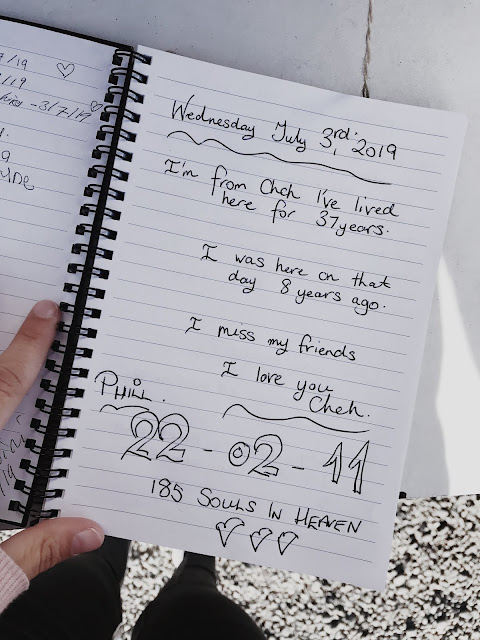 9/19
/19
- 3/7/19
Wednesday July 3rd, 2019
I'm from Chch I've lived
here for 37years.
I was here on that
day 8 years ago.
I miss my friends
I love you
Chch.
PHILL.
22-02-11
185 SOULS IN HEAVEN